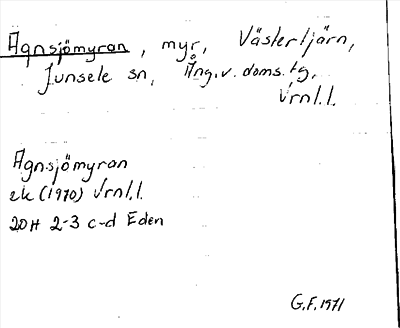 Agnsjömyran, myr, Västertjärn,
Junsele sn, Ång.v.doms.tg,
Vrnl.l.
Agnsjömyran
ek (1970) Vrnl.l.
20H 2-3 c-d Eden
G.F. 1971